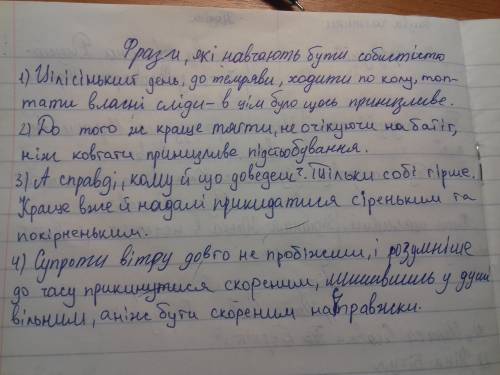 Фрази, які навчають бути особистістю
1) Цілісінький день, до темряви, ходити по колу, топ-
тати власні сліди - в цім було щось принизливе.
2) До того ж краще тягти, не очікуючи на батіг,
ніж ковтати принизливе підстьобування.
3) А справді, кому й що доведеш? Тільки собі гірше.
Краще вже й надалі прикидатися сіреньким та
покірненьким.
4) Супроти вітру довго не пробіжиш, і розумніше
до часу прикинутися скореним, лишившись у душі
вільним, аніж бути скореним насправжки.